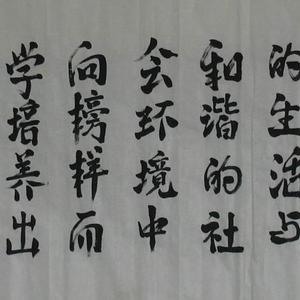 的生活与
和谐的社
会环境中
向榜样而
学培养出